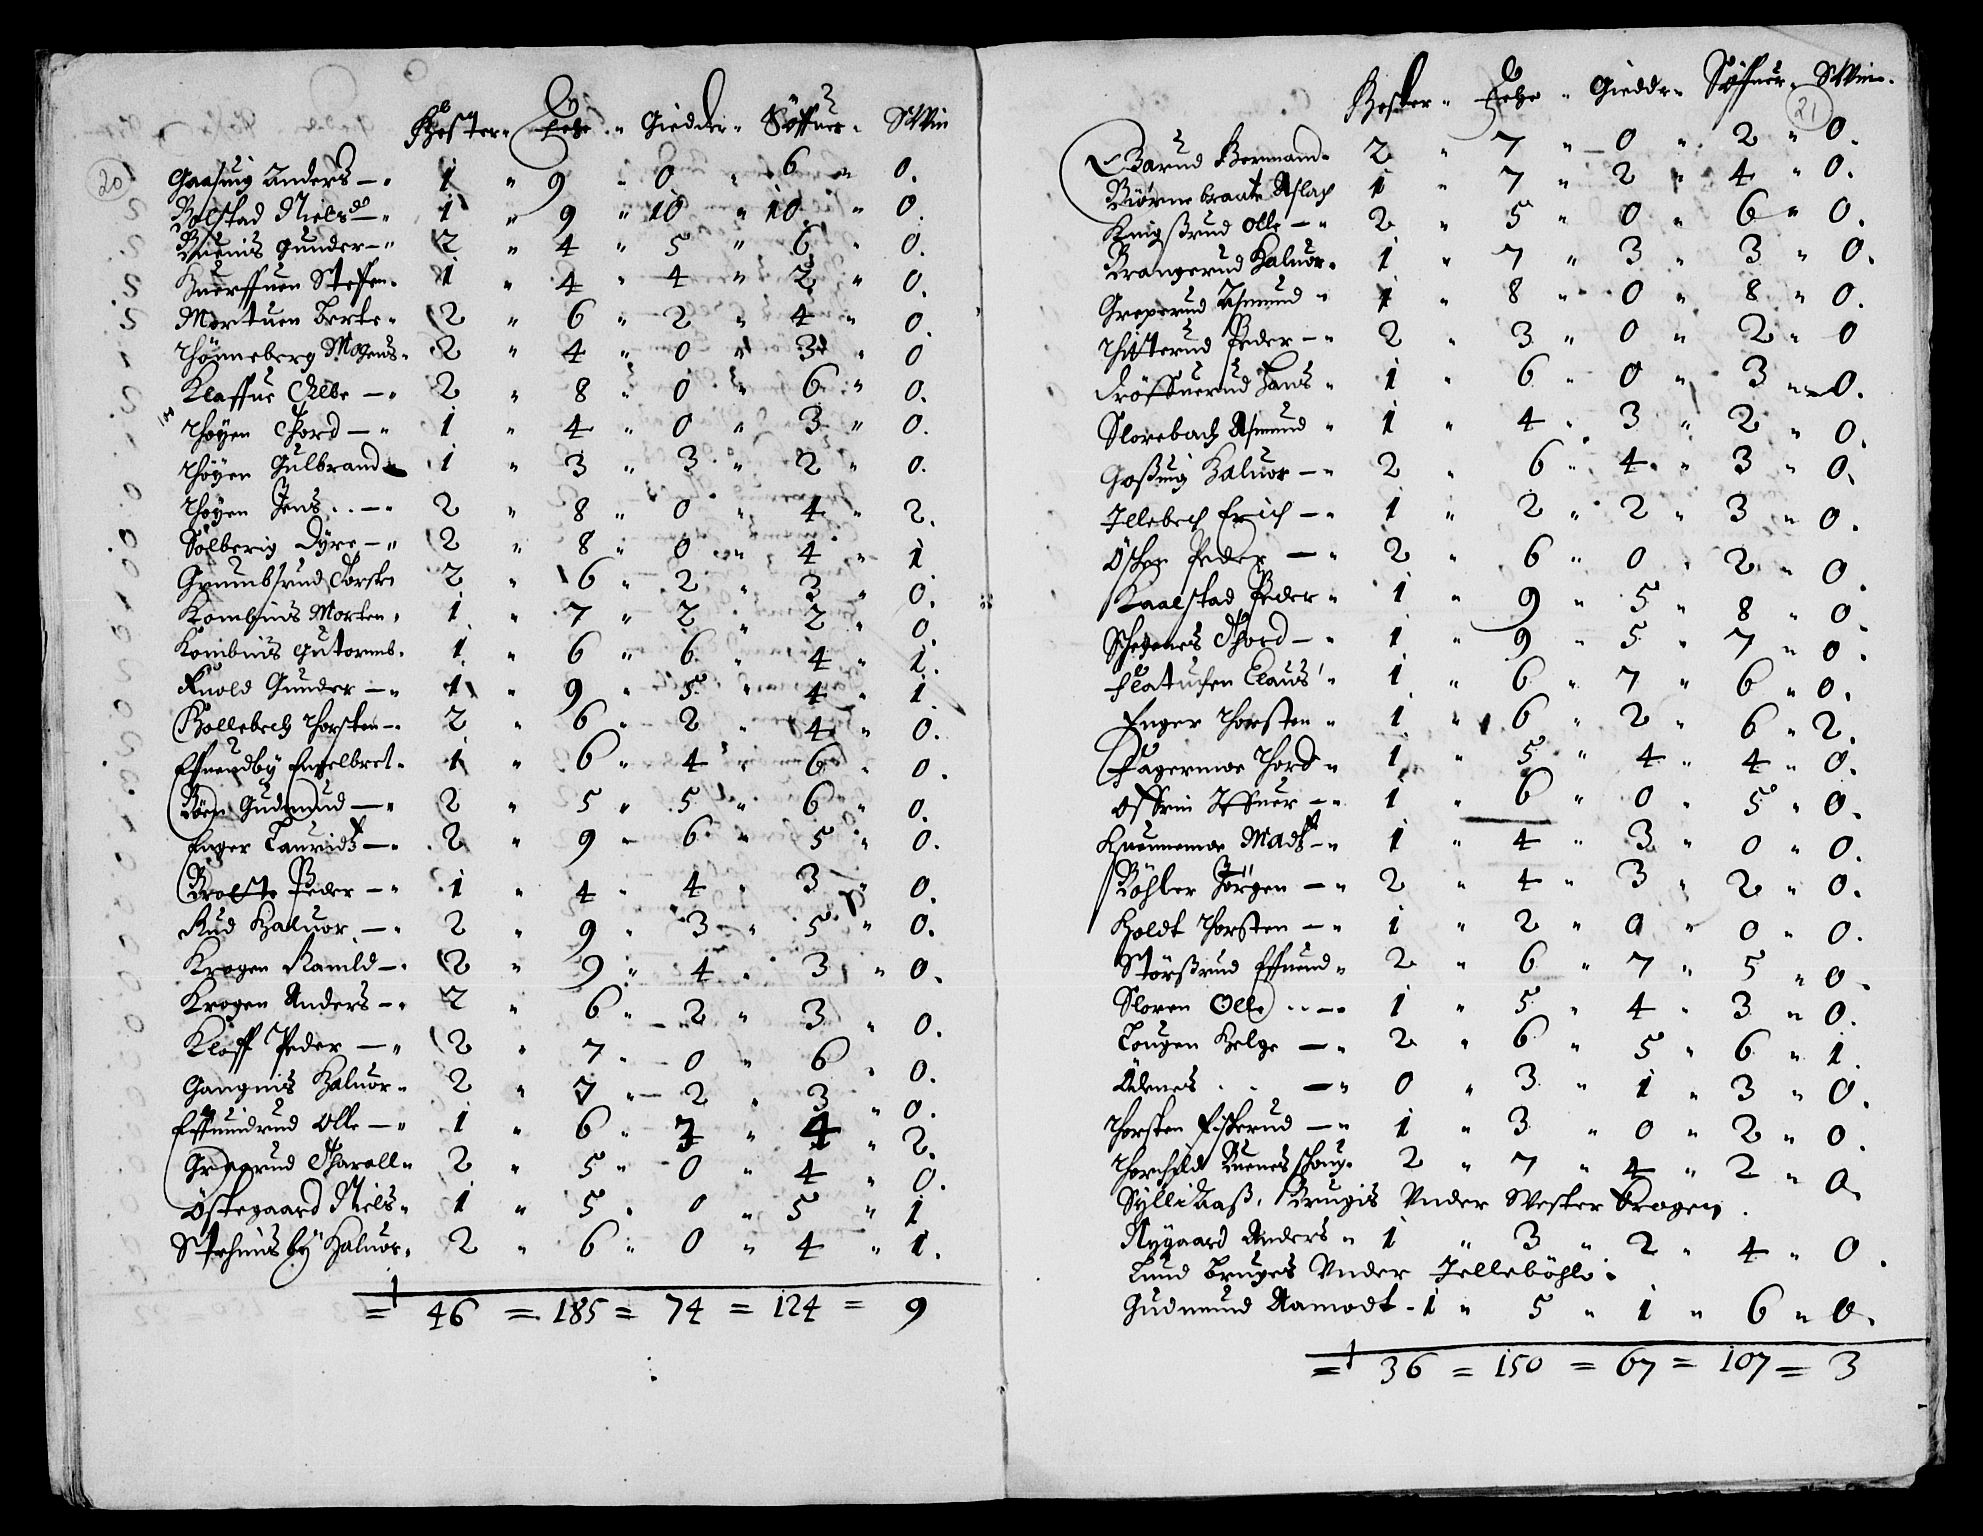 20
Hester " Fehe " Giedder " Söffuer " Swin
Gaasuig Anders — " 1 " 9 " 0 " 6 " 0.
Bolstad Niels — " 1 " 9 " 10 " 10 " 0.
Buenis Gunder — " 2 " 4 " 5 " 6 " 0.
Huerffuen Steffen " 1 " 4 " 4 " 2 " 0.
Mortuen Berte " 2 " 6 " 2 " 4 " 0.
Thönneberg Mogens " 2 " 4 " 0 " 3 " 0
Klaffue Elbe — " 2 " 8 " 0 " 6 " 0.
Thöyen Thord — " 1 " 4 " 0 " 3 " 0.
Thöyen Gulbrand " 1 " 3 " 3 " 2 " 0.
Thöyen Jens . . — " 2 " 8 " 0 " 4 " 2.
Solberig Dyre — " 2 " 8 " 0 " 4 " 1
Grumbsrud Torste 2 " 6 " 2 " 3 " 0.
Kombnis Morten " 1 " 7 " 2 " 2 " 0.
Kombnis Gutormb " 1 " 6 " 6 " 4 " 1.
Knold Gunder — " 1 " 9 " 5 " 4 " 1
Hollebech Thorsten — " 2 " 6 " 2 " 4 " 0.
Effuendby Engelbret " 1 " 6 " 4 " 6 " 0.
Böen Gudmund — " 2 " 5 " 5 " 6 " 0.
Enger Lauridtz — " 2 " 9 " 6 " 5 " 0.
Brotte Peder — " 1 " 4 " 4 " 3 " 0.
Rud Haluor — " 2 " 9 " 3 " 5 " 0.
Krogen Ramild — " 2 " 9 " 4 " 3 " 0.
Krogen Anders — " 2 " 6 " 2 " 3 " 0.
Kloff Peder — " 2 " 7 " 0 " 6 " 0.
Gangnis Haluor " 2 " 7 " 2 " 3 " 0.
Effuindrud Olle — " 1 " 6 " 7 " 4 " 2.
Greperud Tharall " 2 " 5 " 0 " 4 " 0.
Östegaard Niels " 1 " 5 " 0 " 5 " 1
Stehmisby Haluor " 2 " 6 " 0 " 4 " 1.
= 46 = 185 = 74 = 124 = 9
21
Hester " Fehe " Giedder " Söffuer " Swin
Barud Hermand " 2 " 7 " 0 " 2 " 0.
Biörnebraate Aslach 1 " 7 " 2 " 4 " 0.
Knigßrud Olle — " 2 " 5 " 0 " 6 " 0.
Brangerud Haluor " 1 " 7 " 3 " 3 " 0.
Greperud Asmund " 1 " 8 " 0 " 8 " 0.
Thitterud Peder — " 2 " 3 " 0 " 2 " 0
Fröffuerud Hans " 1 " 6 " 0 " 3 " 0.
Slorebach Asmund " 1 " 4 " 3 " 2 " 0.
Goßuig Haluor — " 2 " 6 " 4 " 3 " 0.
Jllebech Erich — " 1 " 2 " 2 " 3 " 0.
Öskor Peder — " 2 " 6 " 0 " 2 " 0.
Kaalstad Peder " 1 " 9 " 5 " 8 " 0.
Schepenes Thord — " 1 " 9 " 5 " 7 " 0.
Flatuffen Claus " 1 " 6 " 7 " 6 " 0.
Enger Thorsten " 1 " 6 " 2 " 6 " 2.
Fagermoe Thord " 1 " 5 " 4 " 4 " 0.
Offrim Iffuer — " 1 " 6 " 0 " 5 " 0.
Huennemoe Madtz — " 1 " 4 " 3 " 0 " 0.
Böhler Jörgen — " 2 " 4 " 3 " 2 " 0.
Holdt Thorsten — " 1 " 2 " 0 " 0 " 0.
Störßrud Effuend " 2 " 6 " 7 " 5 " 0
Sloren Olle . . — " 1 " 5 " 4 " 3 " 0.
Tougen Helge — " 2 " 6 " 5 " 6 " 1.
Aadnes . . — " 0 " 3 " 1 " 3 " 0.
Thorsten Fisterud — " 1 " 3 " 0 " 2 " 0.
Thorchild Buenes 2 " 7 " 4 " 2 " 0.
Sylliaaß, Brugis Vnder Wester Krogen.
Nygaard Anders " 1 " 3 " 2 " 4 " 0.
Lund bruges Vnder Jelleböhle.
Gudmund Aamodt - 1 " 5 " 1 " 6 " 0.
= 36 = 150 = 67 = 107 = 3